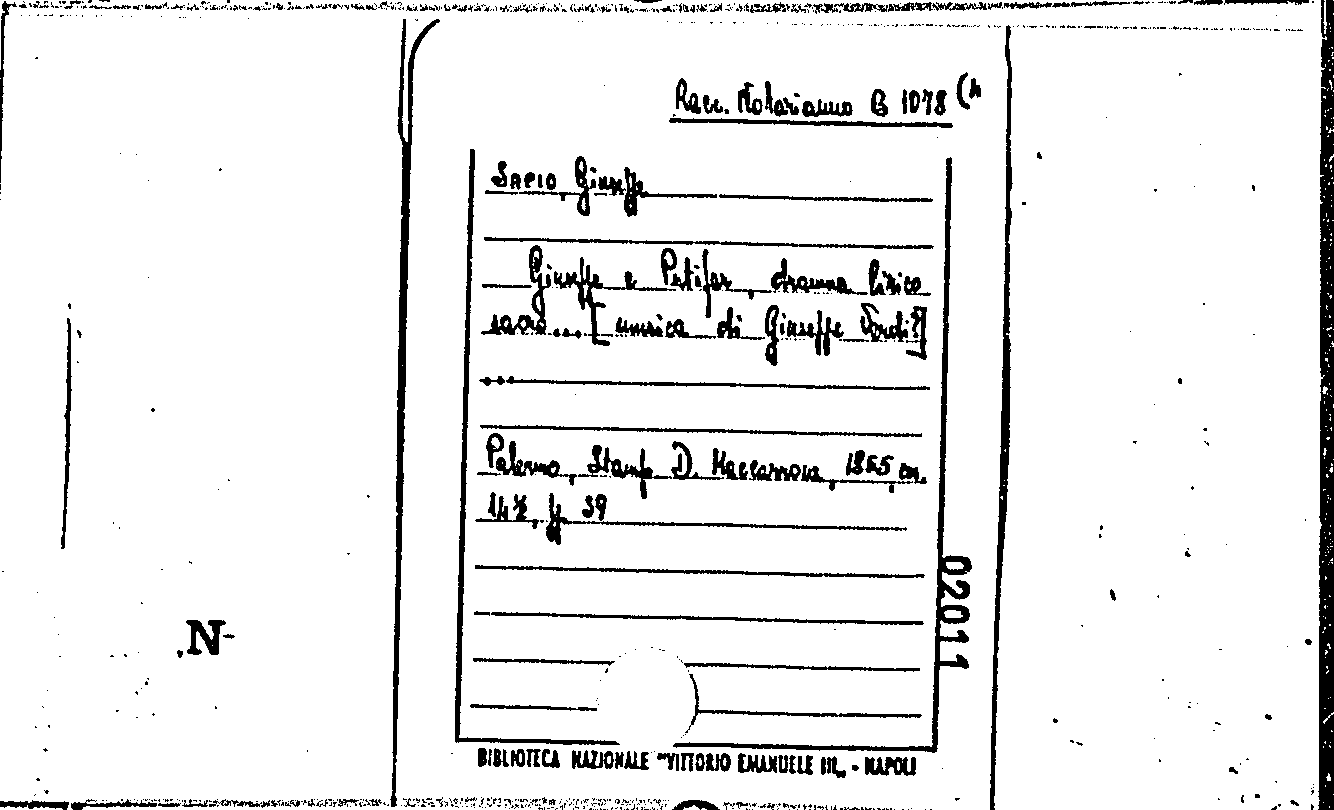 Racc. Notarianno B 1078 (4
Sapio, Giuseppe
Giuseppe e Putifar, dramma lirico
sacro...[musica di Giuseppe Verdi?]
...
Palermo, Stamp. D. Maccarrone, 1855, cm.
14½, pp. 39
02011
.N-
BIBLIOTECA NAZIONALE "VITTORIO EMANUELE III„ - NAPOLI